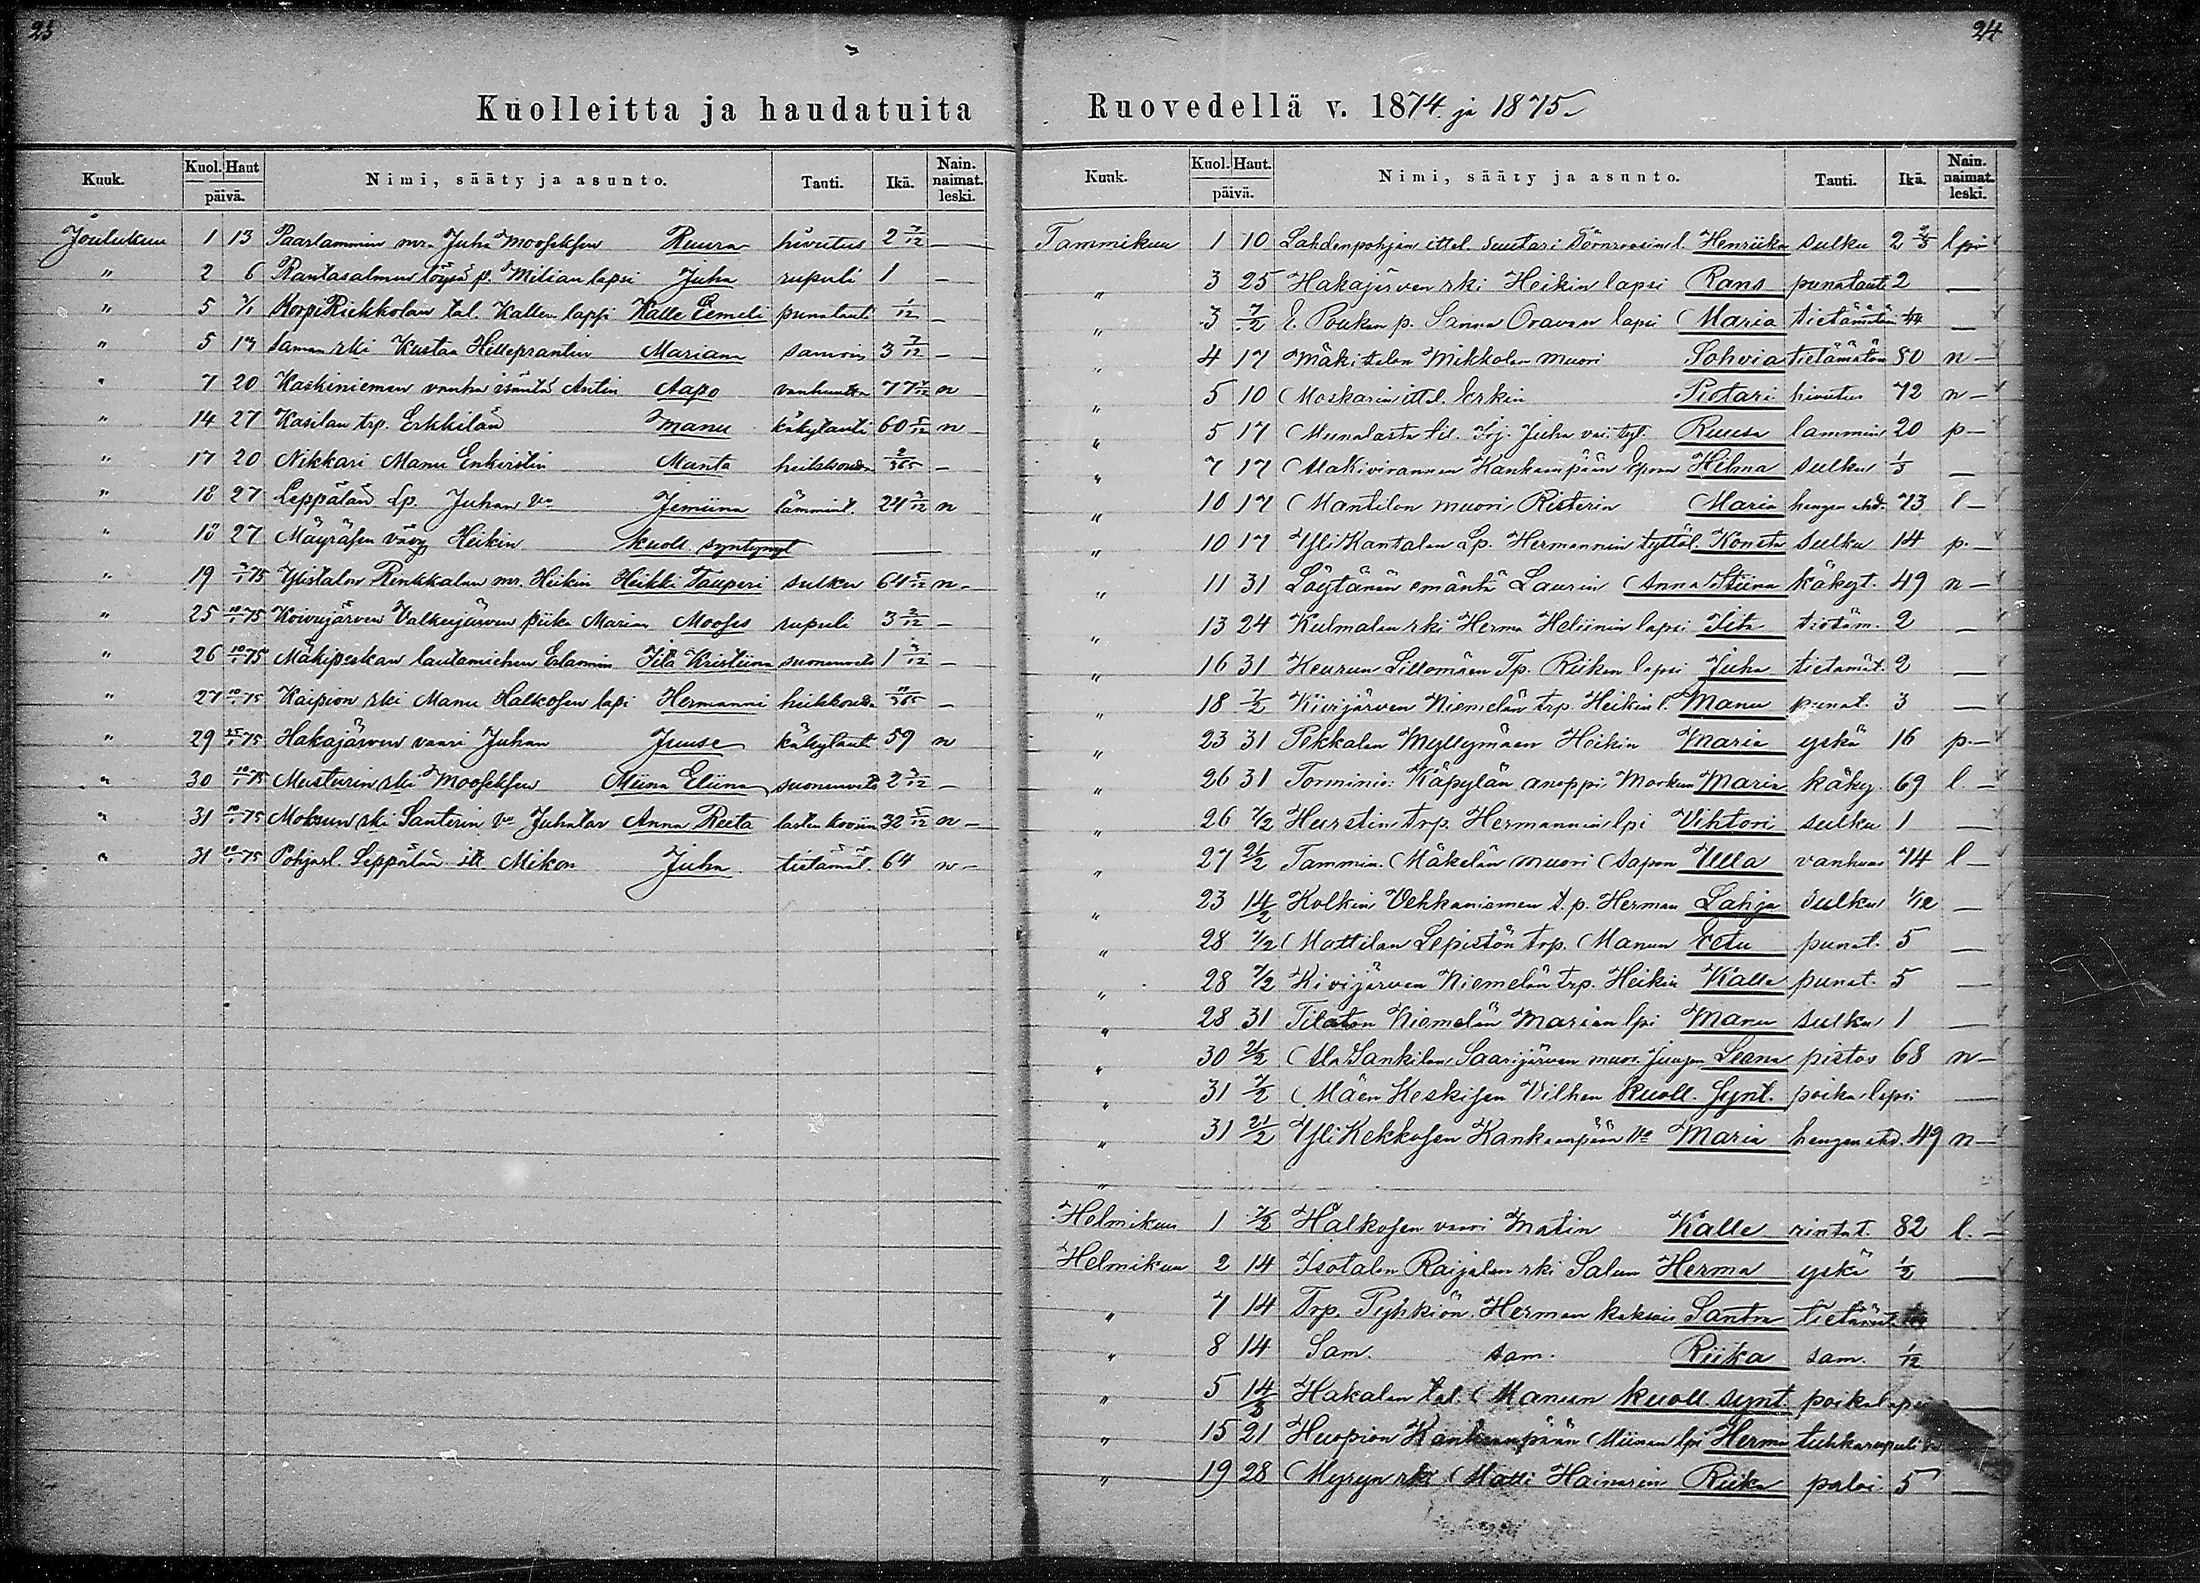 23
Kuolleitta ja haudatuita
Kuuk. Kuol. Haut päivä. Nimi, sääty ja asunto. Tauti. Ikä. Nain. naimat. leski.
Joulukuu 1 13 Paarlammin mr. Juha Mooseksen Ruura hivutus 2 7/12 —
" 2 6 Rantasalmen löysä p. Milian lapsi Juha rupuli 1 —
" 5 3/1 KorpiRiekkolan tal. Kallen lapsi Kalle Eemeli punatauti 1/12 —
" 5 13 saman rki Kustaa Helleprantin Mariana samoin 3 7/12 —
" 7 20 Kaskiniemen vanha isäntä Antin Aapo vanhuutta 77 n
" 14 27 Kasilan trp. Erkkilän Manu käkytauti 60 5/12 n
" 17 20 Nikkari Manu Enkvistin Manta heikkoude 2/365 —
" 18 27 Leppälän Lp. Juhan vo Jemiina lämmint. 24 n
" 18 27 Mäyräsen vävy Heikin kuoll. syntynyt —
" 19 3/1 75 Ylistalon Penkkalan mr. Heikin Heikki Tauperi sulku 64 5/12 n.
" 25 10/1 75 Koivujärven Valkeejärven piika Marian Mooses rupuli 3 2/12 —
" 26 10/1 75 Mäkipeskan lautamiehen Eslammin Iita Kristiina suonenveto 1 —
" 27 10/1 75 Kaipion rki Manu Halkosen lapsi Hermanni heikkoude 11/365 —
" 29 25/1 75 Hakajärven vaari Juhan Juuse käkytauti 59 n
" 30 10/1 75 Musturin rki Mooseksen Miina Eliina suonenveto 2 —
" 31 10/1 75 Moksun rki Santerin vo Juhatar Anna Reeta lasten kovun 32 5/12 n —
" 31 10/1 75 Pohjasl. Leppälän itl. Mikon Juha tietämät. 64 n —
24
Ruovedellä v. 1874 ja 1875
Kuuk. Kuol. Haut. päivä. Nimi, sääty ja asunto. Tauti. Ikä. Nain. naimat. leski.
Tammikuu 1 10 Lahdenpohjan ittel. suutari Törnroosin l. Henriika sulku 2 lpsi
" 3 25 Hakajärven rki Heikin lapsi Rans punataut. 2 —
" 3 7/2 E. Poukan p. Sanna Oravan lapsi Maria tietämätön —
" 4 17 Mäkitalon Mikkolan muori Sohvia tietämätön 80 n —
" 5 10 Moskarin ittel. Erkin Pietari hivutus 72 n —
" 5 17 Munalasta til. Juha vai. tyt. Ruusa lammin 20 p —
" 7 17 AlaKivirannan Kankaanpään Epran Hilma sulku 1/3 —
" 10 17 Mantilan muori Risterin Maria hengen ahd. 73 l —
" 10 17 YliKantalan Lp. Hermannin tyttäl. Konsta sulku 14 p. —
" 11 31 Löytänän emäntä Laurin Anna Stiina käkyt. 49 n —
" 13 24 Kulmalan rki Herma Heliinin lapsi Iita tietäm. 2 —
" 16 31 Keurun Sillomäen Tp. Riikan lapsi Juha tietämät. 2 —
" 18 7/2 Kivijärven Niemelän trp. Heikin l. Manu punat. 3 —
" 23 31 Pekkalan Myllymäen Heikin Maria yskä 16 p. —
" 26 31 Torminie: Käpylän anoppi Markun Maria käky. 69 l. —
" 26 7/2 Hurstin trp. Hermannin lpi Vihtori sulku 1 —
" 27 21/2 Tammin. Mäkelän muori Aapon Ulla vanhuus 74 l —
" 23 14/2 Kolkin Vekkaniemen t.p. Herman Lahja sulku 1/12 —
" 28 7/2 Mattilan Lepistön trp. Manun Eetu punat. 5 —
" 28 7/2 Kivijärven Niemelän trp. Heikin Kalle punat. 5 —
" 28 31 Tilaton Niemelän Marian lpi Manu sulku 1 —
" 30 21/2 AlaSankilan Saarijärven muor. Juusen Leena pistos 68 n —
" 31 7/2 Mäen Keskisen Vilhen kuoll. synt. poika lapsi —
" 31 21/2 YliKekkosen Kankaanpään vo Maria hengen ahd. 49 n —
"
Helmikuu 1 7/2 Halkosen vaari Matin Kalle rintat. 82 l. —
Helmikuu 2 14 Isotalon Raijalan rki Salun Herma yskä 1/2 —
" 7 14 Trp. Pyhkiön Herman kaksois Santra tietämät.
" 8 14 Sam. sam. Riika sam. 1/12
" 5 14/3 Hakalan tal. Manun kuoll. synt. poikalapsi
" 15 21 Huopion Kankaanpään Miinan lpi Herma tuhkarupuli
" 19 28 Myryn rki Matti Hainarin Riika paloi 5 —